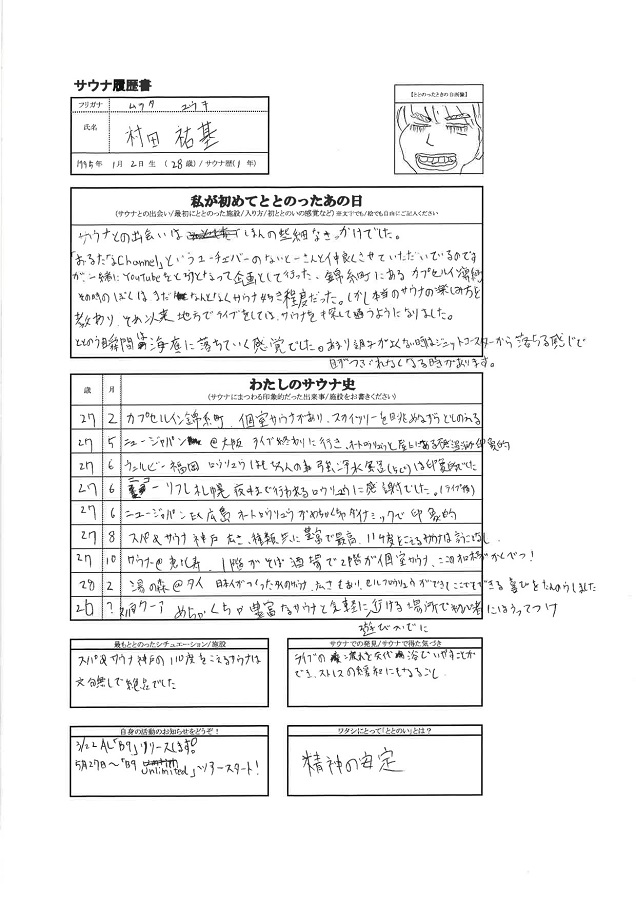 サウナ履歴書
【ととのったときの自画像】
フリガナ ムラタ ユウキ
氏名 村田 祐基
1995年 1月 2日生 (28歳)/サウナ歴(1年)
私が初めてととのったあの日
(サウナとの出会い/最初にととのった施設/入り方/初ととのいの感覚など) ※文字でも/絵でも自由にご記入ください
サウナとの出会いは ほんの些細なきっかけでした。
「おるたなChannel」というユーチューバーのないとーさんと仲良くさせていただいているのです
が、一緒にYouTubeをとる となって企画として行った、錦糸町にあるカプセルイン錦糸町
その時のぼくは、まだ なんとなくサウナ好き程度だった。しかし本当のサウナの楽しみ方を
教わり、それ以来 地方でライブをしては、サウナを探して通うようになりました。
ととのう瞬間は 海底に落ちていく感覚でした。あまり調子がよくない時はジェットコースターから落ちる感じで
目がつぶれなくなる時があります。
わたしのサウナ史
(サウナにまつわる印象的だった出来事/施設をお書きください)
歳 月
27 2 カプセルイン錦糸町、個室サウナがあり、スカイツリーを眺めながらととのえる
27 5 ニュージャパン @大阪 ライブ終わりに行き、オートロウリュウと屋上にある 印象的
27 6 ウェルビー福岡 ロウリュウは 強冷水風呂 は印象的でした
27 6 ニコーリフレ札幌 夜中まで行われるロウリュウに感謝でした。(ライブ後)
27 6 ニュージャパンEX広島 オートロウリュウがめちゃくちゃダイナミックで印象的
27 8 スパ&サウナ神戸 広さ、種類共に豊富で最高、110度をこえるサウナは言うことなし
27 10 サウナ@恵比寿 1階がそば酒場で2階が個室サウナ、ここの相性がかくべつ!
28 2 湯の森@タイ 日本人がつくったタイのサウナ、広さもあり、セルフロウリュウができてここでもできる喜びをたんのうしました
26 ? スパラクーア めちゃくちゃ豊富なサウナと気軽に行ける場所で初心者にはうってつけ
遊びついでに
最もととのったシチュエーション/施設
スパ&サウナ神戸の110度をこえるサウナは
文句無しで絶品でした
サウナでの発見/サウナで得た気づき
ライブの 疲れを交代浴でいやすことが
でき、ストレスの緩和にもなること
自身の活動のお知らせをどうぞ!
3/22 AL「B9」リリースします!
5月27日〜「B9 Unlimited」ツアースタート!
ワタシにとって「ととのい」とは?
精神の安定